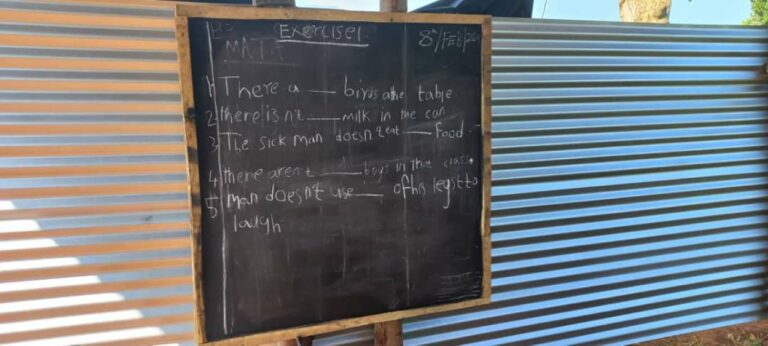 Exercise1
8/FEB/20
MATH
1 There a ___ birds athe table.
2 there isn't ___ milk in the can
3 The sick man doesn't eat ___ Food.
4 there aren't ___ boys in that class.
5 man doesn't use ___ of his legs to
laugh